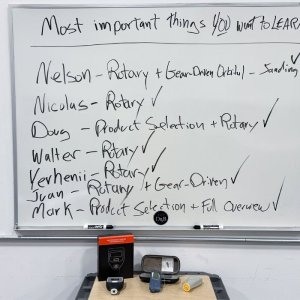 Most important things YOU want to LEARN
Nelson - Rotary + Gear-Driven Orbital - Sanding ✓
Nicolas - Rotary ✓
Doug - Product Selection + Rotary ✓
Walter - Rotary ✓
Yevhenii - Rotary ✓
Juan - Rotary + Gear-Driven ✓
Mark - Product Selection + Full Overview ✓